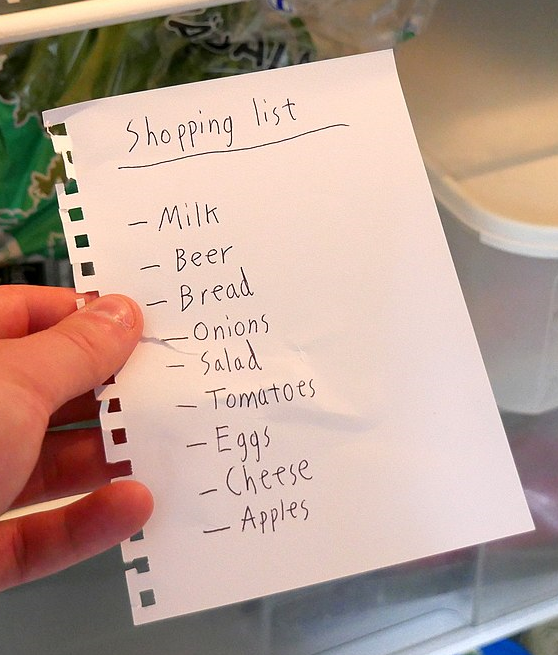 Shopping list
- Milk
- Beer
- Bread
- Onions
- Salad
- Tomatoes
- Eggs
- Cheese
- Apples